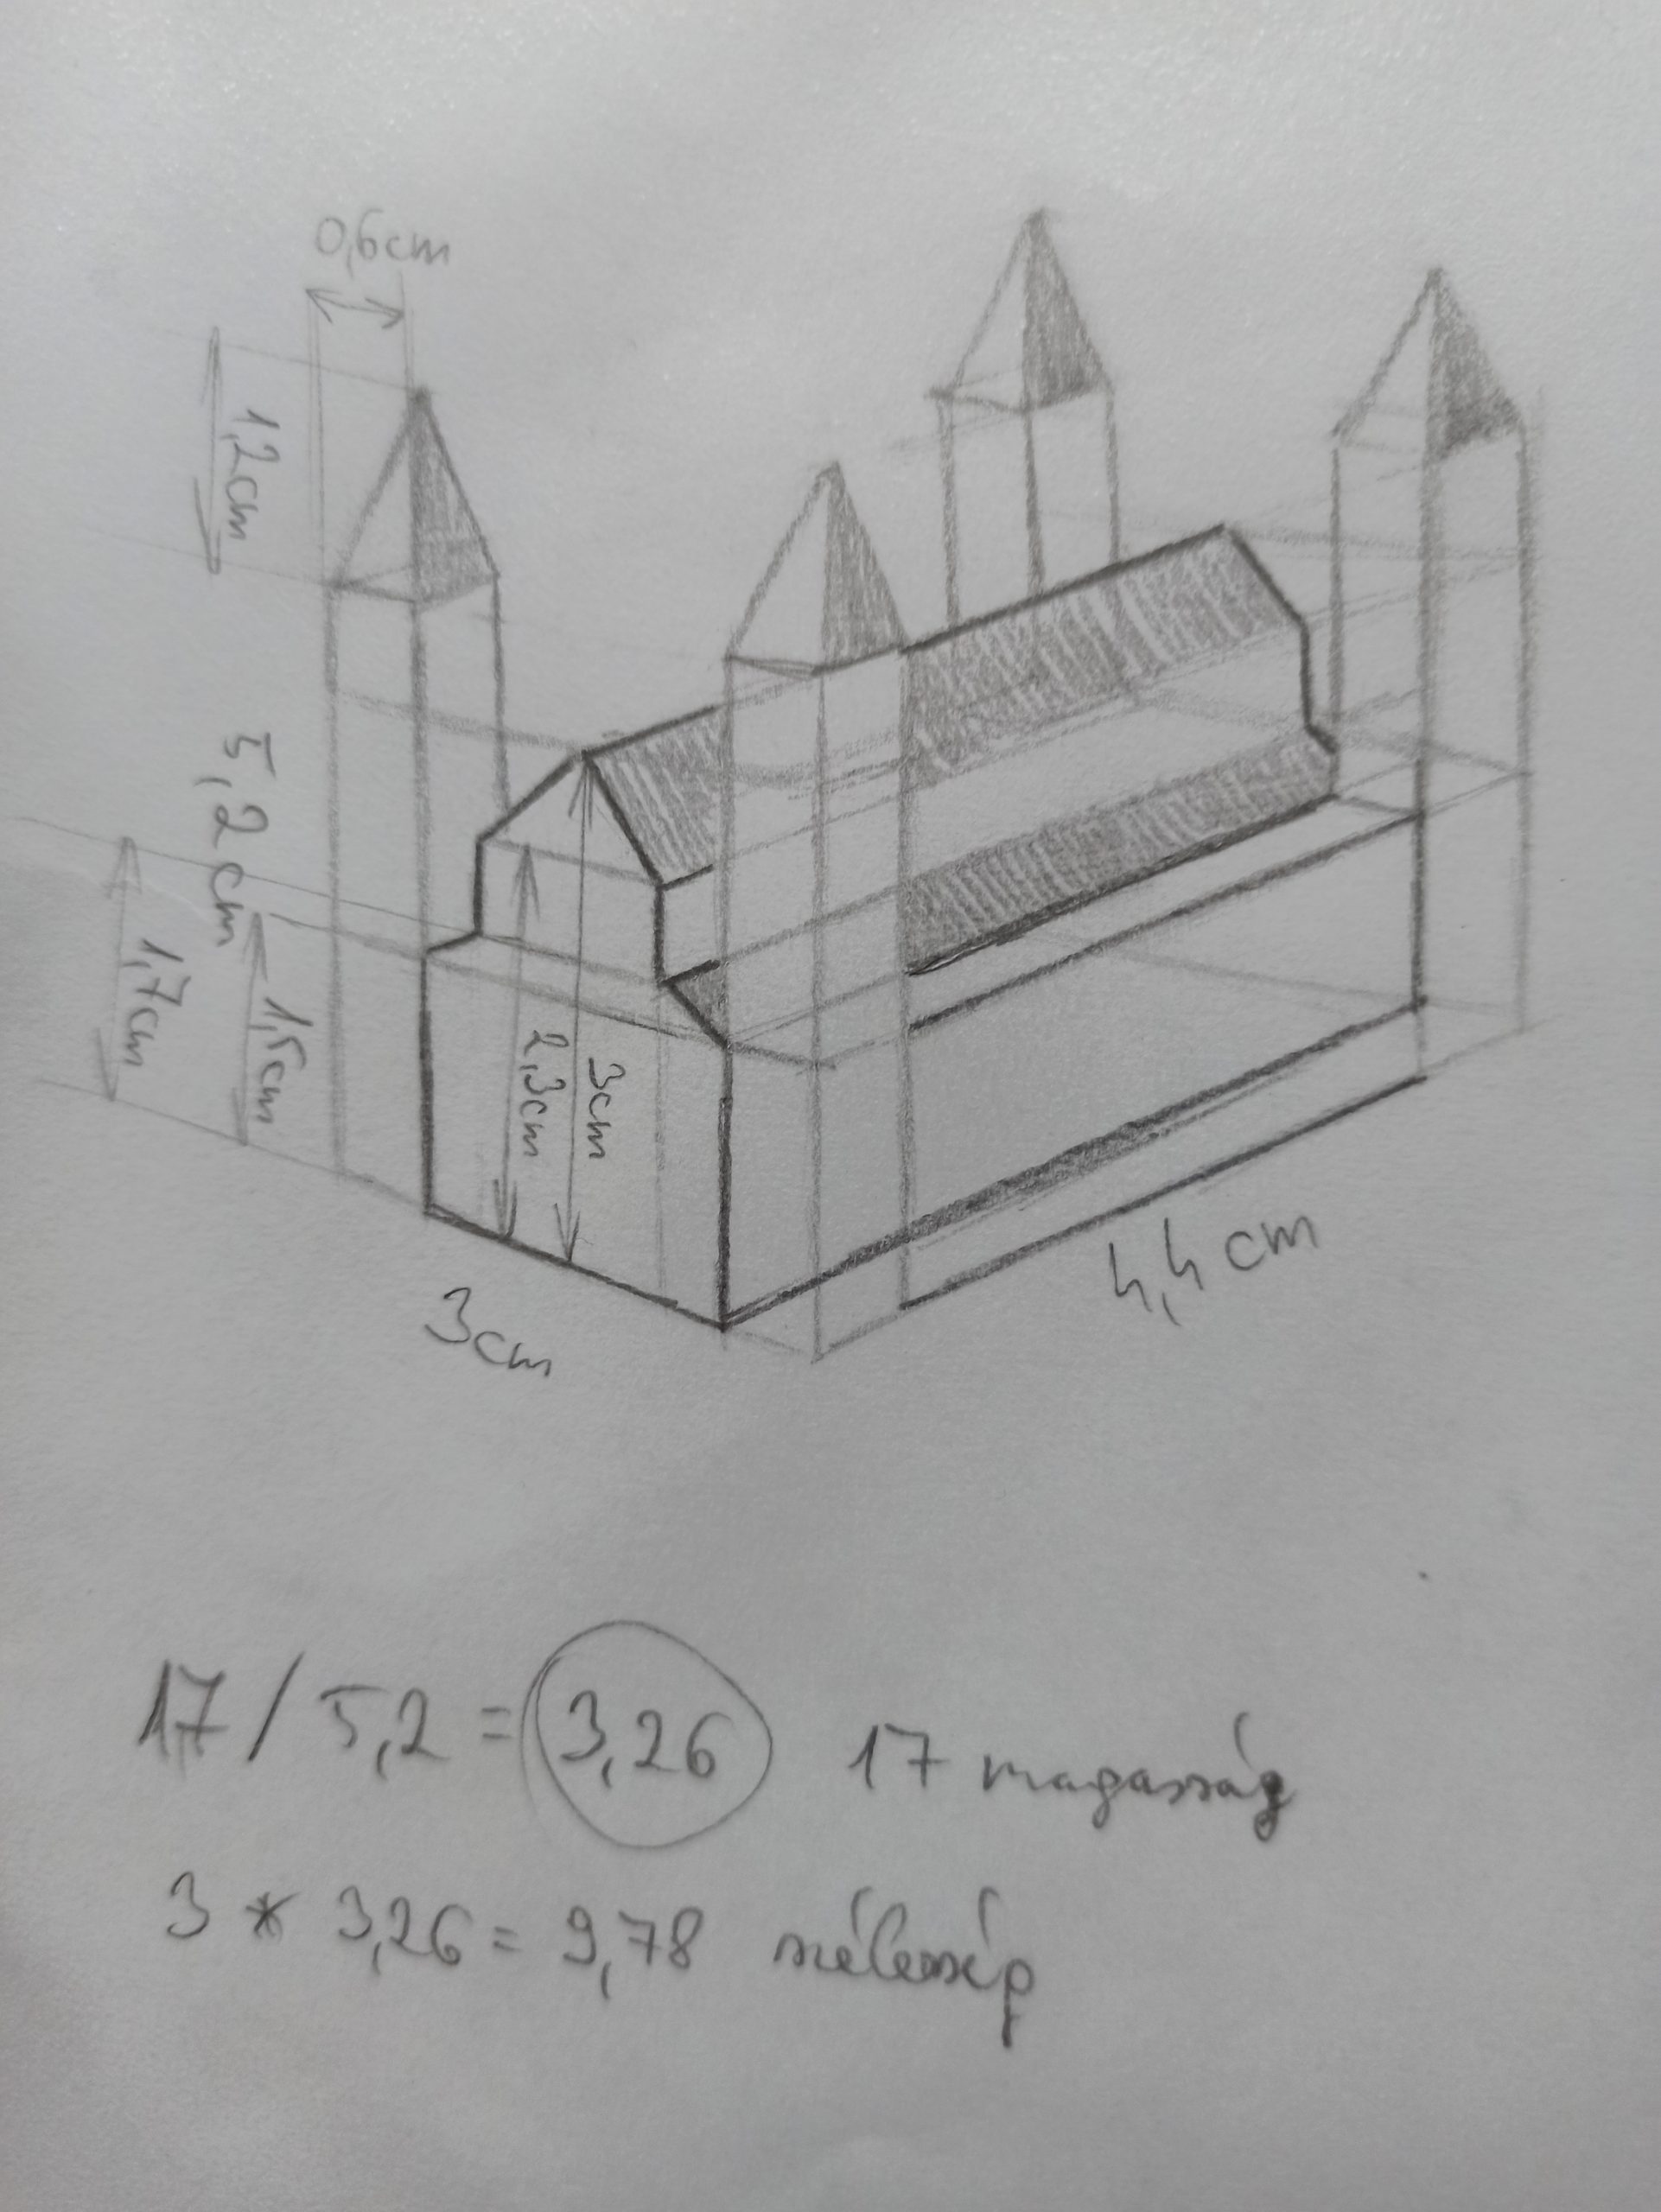 0,6cm
1,2cm
5,2cm
1,7cm
1,5cm
2,3cm
3cm
3cm
4,4 cm
17 / 5,2 = 3,26 17 magasság
3 * 3,26 = 9,78 szélesség